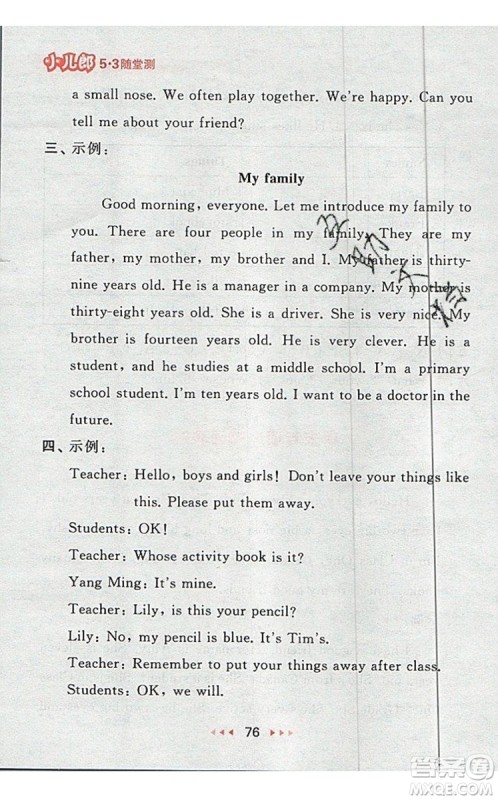 小儿郎 5·3随堂测
a small nose. We often play together. We're happy. Can you
tell me about your friend?
三、示例：
My family
Good morning, everyone. Let me introduce my family to
you. There are four people in my family. They are my
father, my mother, my brother and I. My father is thirty-
nine years old. He is a manager in a company. My mother is
thirty-eight years old. She is a driver. She is very nice. My
brother is fourteen years old. He is very clever. He is a
student, and he studies at a middle school. I'm a primary
school student. I'm ten years old. I want to be a doctor in the
future.
四、示例：
Teacher: Hello, boys and girls! Don't leave your things like
this. Please put them away.
Students: OK!
Teacher: Whose activity book is it?
Yang Ming: It's mine.
Teacher: Lily, is this your pencil?
Lily: No, my pencil is blue. It's Tim's.
Teacher: Remember to put your things away after class.
Students: OK, we will.
76
答案圈
MXQE.COM